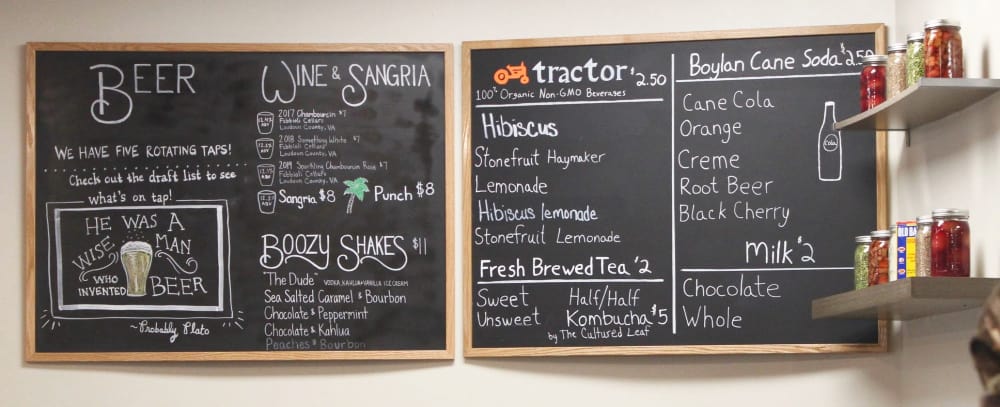 BEER
WE HAVE FIVE ROTATING TAPS!
Check out the draft list to see
what's on tap!
HE WAS A
WISE MAN
WHO INVENTED BEER
~Probably Plato
WINE & SANGRIA
2017 Chambourcin $7
Fabbioli Cellars
Loudoun County, VA
2018 Something White $7
Fabbioli Cellars
Loudoun County, VA
2019 Sparkling Chambourcin Rosé $7
Fabbioli Cellars
Loudoun County, VA
Sangria $8 Punch $8
BOOZY SHAKES $11
The Dude~ VODKA, KAHLUA & VANILLA ICE CREAM
Sea Salted Caramel & Bourbon
Chocolate & Peppermint
Chocolate & Kahlua
Peaches & Bourbon
tractor $2.50
100% Organic Non-GMO Beverages
Hibiscus
Stonefruit Haymaker
Lemonade
Hibiscus lemonade
Stonefruit Lemonade
Fresh Brewed Tea $2
Sweet Half/Half
Unsweet Kombucha $5
by The Cultured Leaf
Boylan Cane Soda $2.50
Cane Cola
Orange
Creme
Root Beer
Black Cherry
Cola
Milk $2
Chocolate
Whole
OLD BA